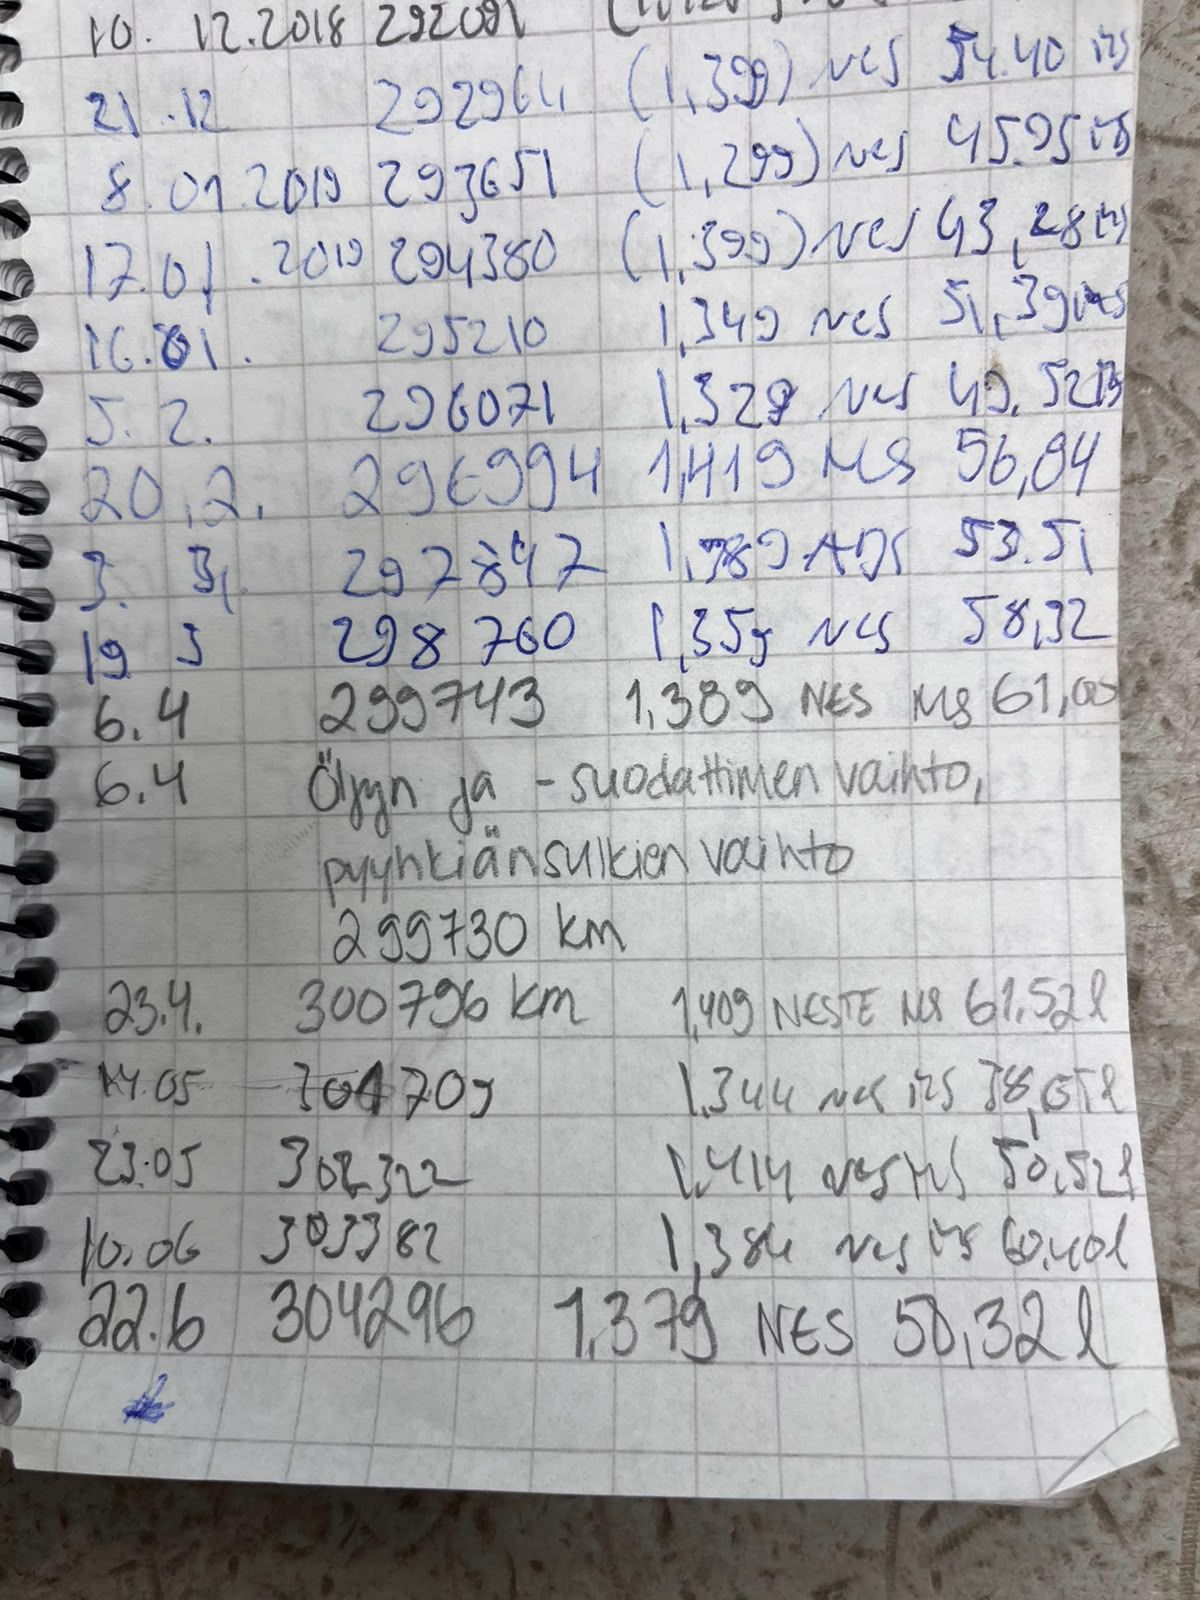 10. 12.2018 292091
21.12 292964 (1,399) NES 54.40
8.01.2019 293651 (1,299) NES 45.95
17.01.2019 294380 (1,399) NES 43,28
295210 1,349 NES 51,39
5.2. 296071 1,329 NES 49.52
20.2. 296994 1,419 MS 56,04
3. 3. 297847 1,389 53.51
19 3 298760 1,359 NES 58,32
6.4 299743 1.389 NES MS 61,05
6.4 Öljyn ja -suodattimen vaihto,
pyyhkiänsulkien vaihto
299730 km
23.4. 300796 km 1,409 NESTE MS 61.52 l
14.05 301709 1,344 NES
23.05 302322 1,414 NES MS 50,52 l
10.06 303382 1,384 NES 60,40 l
22.6 304296 1,379 NES 50,32 l